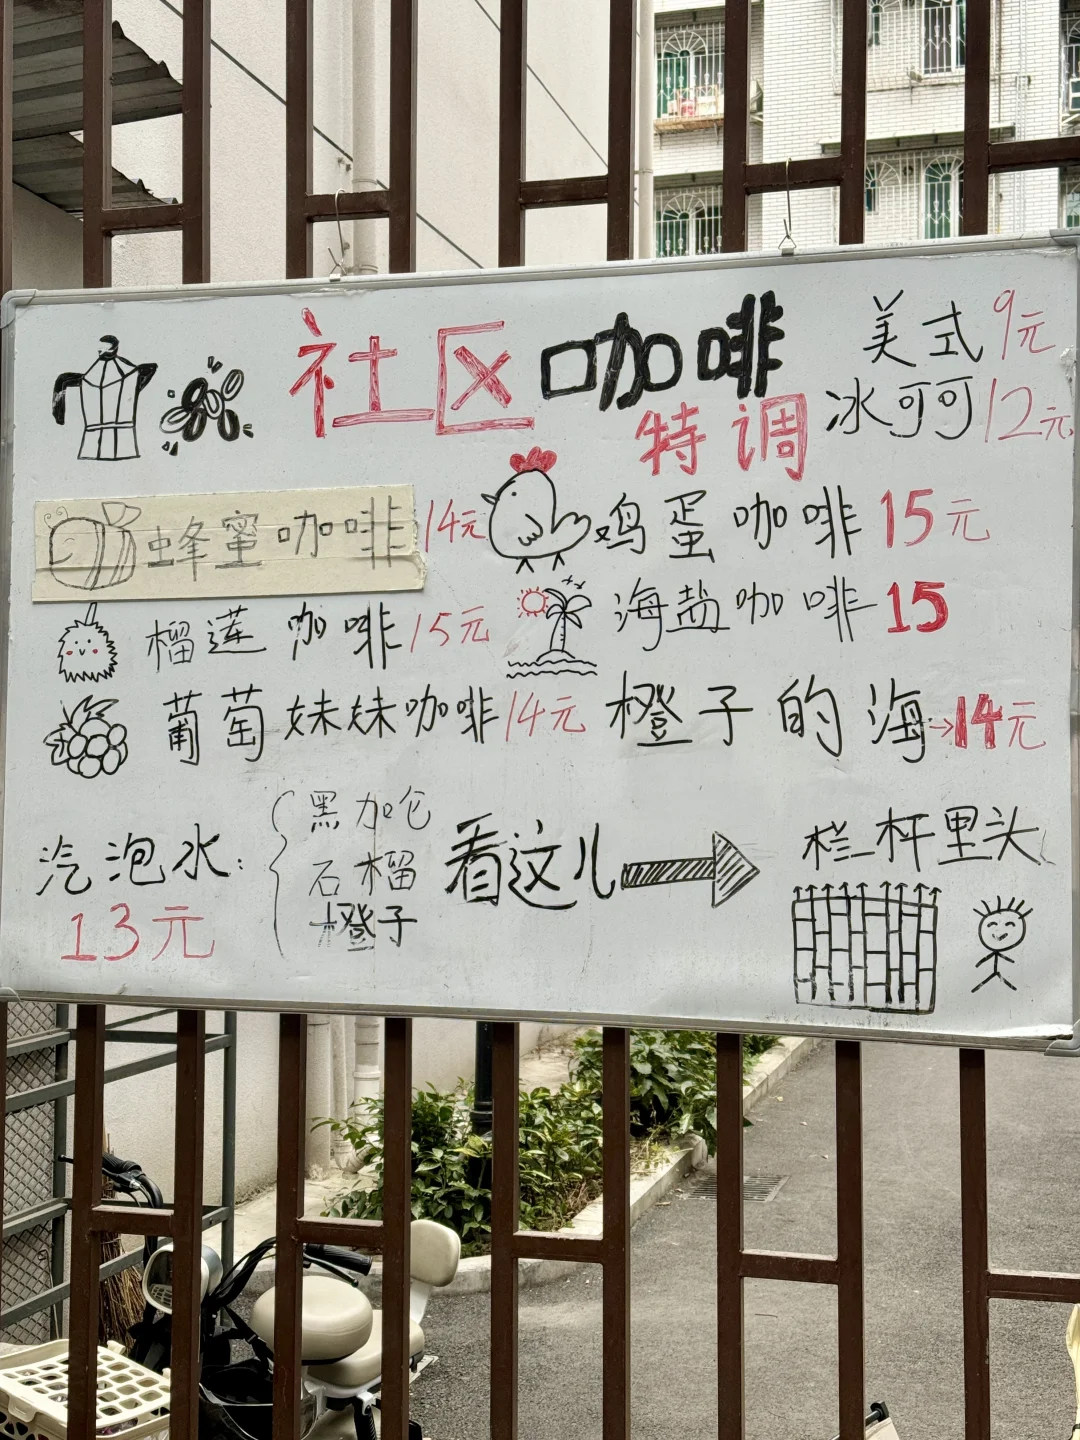 社区咖啡
特调
美式9元
冰可可12元
蜂蜜咖啡14元
鸡蛋咖啡15元
榴莲咖啡15元
海盐咖啡15
葡萄妹妹咖啡14元
橙子的海→14元
汽泡水:
13元
黑加仑
石榴
橙子
看这儿
栏杆里头